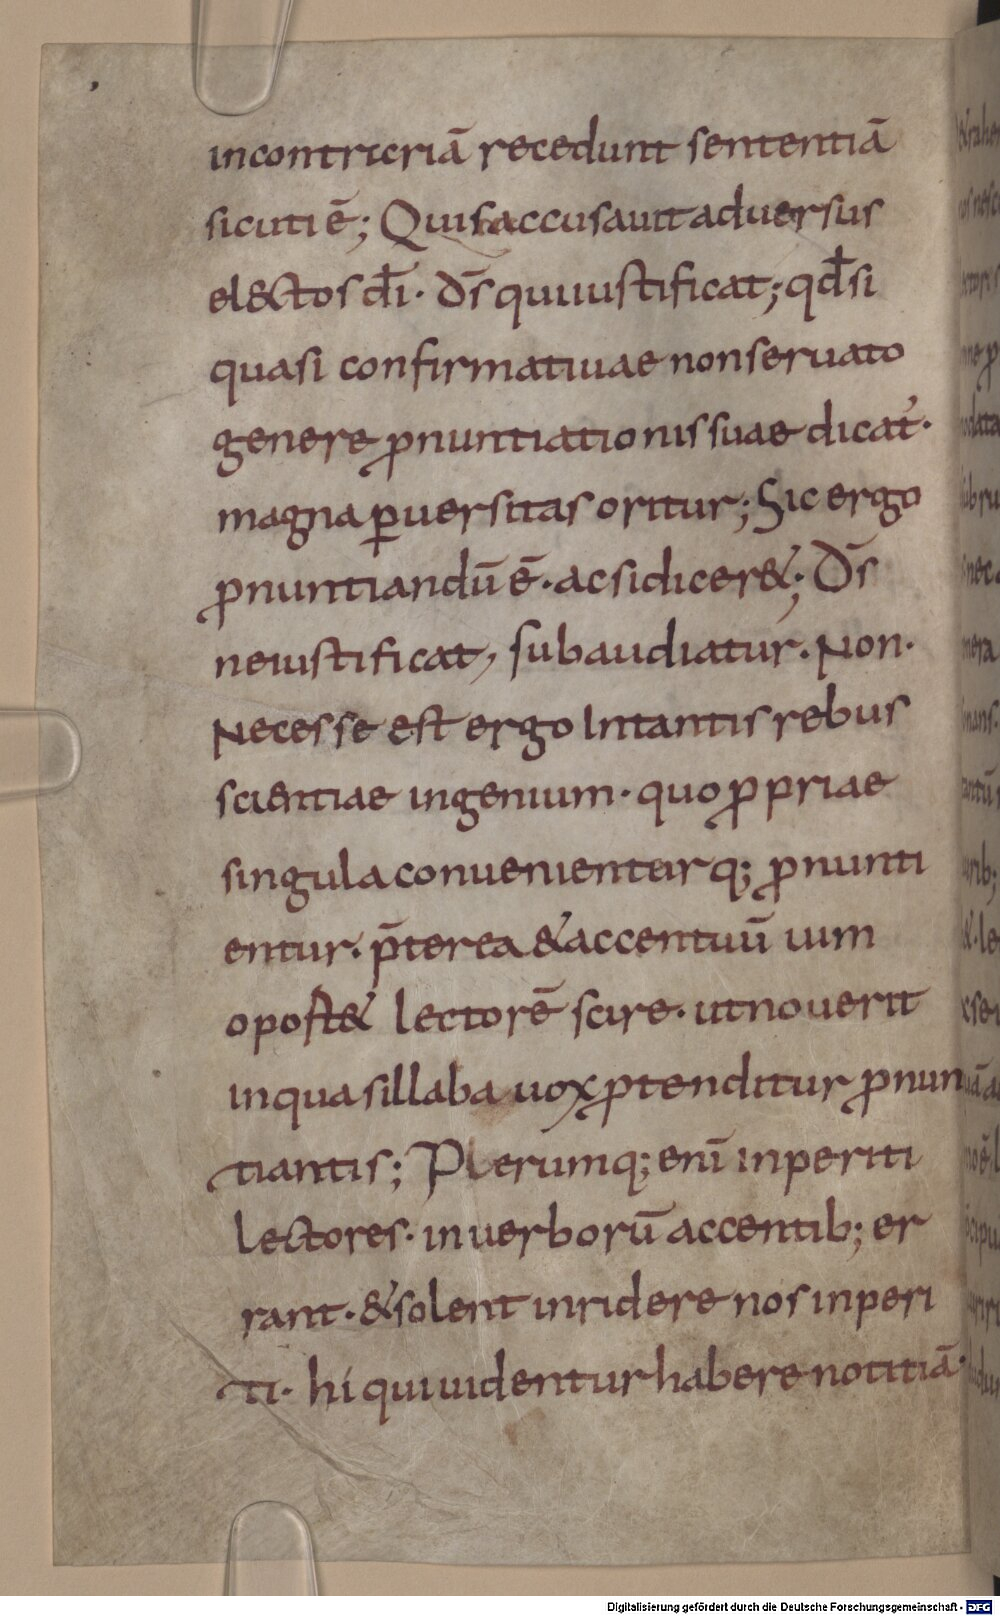 incontrariā recedunt sententiā
sicuti ē; Quis accusauit aduersus
electos dī· Ds̄ qui iustificat; qd̄ si
quasi confirmatiuae non seruato
genere ꝓnuntiationis suae dicat̛·
magna ꝑuersitas oritur; Sic ergo
ꝓnuntiandū ē· ac si dicer&; Ds̄
ne iustificat, subaudiatur· Non·
Necesse est ergo Intantis rebus
scientiae ingenium· quo ꝓpriae
singula conuenienterq; ꝓnunti
entur· p̄terea & accentuū uim
oport& lectorē scire· ut nouerit
in qua sillaba uox ꝓtenditur ꝓnun
tiantis; Plerumq; enī inperiti
lectores· in uerborū accentib; er
rant· & solent inridere nos inperi
ti· hi qui uidentur habere notitiā·
Digitalisierung gefördert durch die Deutsche Forschungsgemeinschaft - DFG